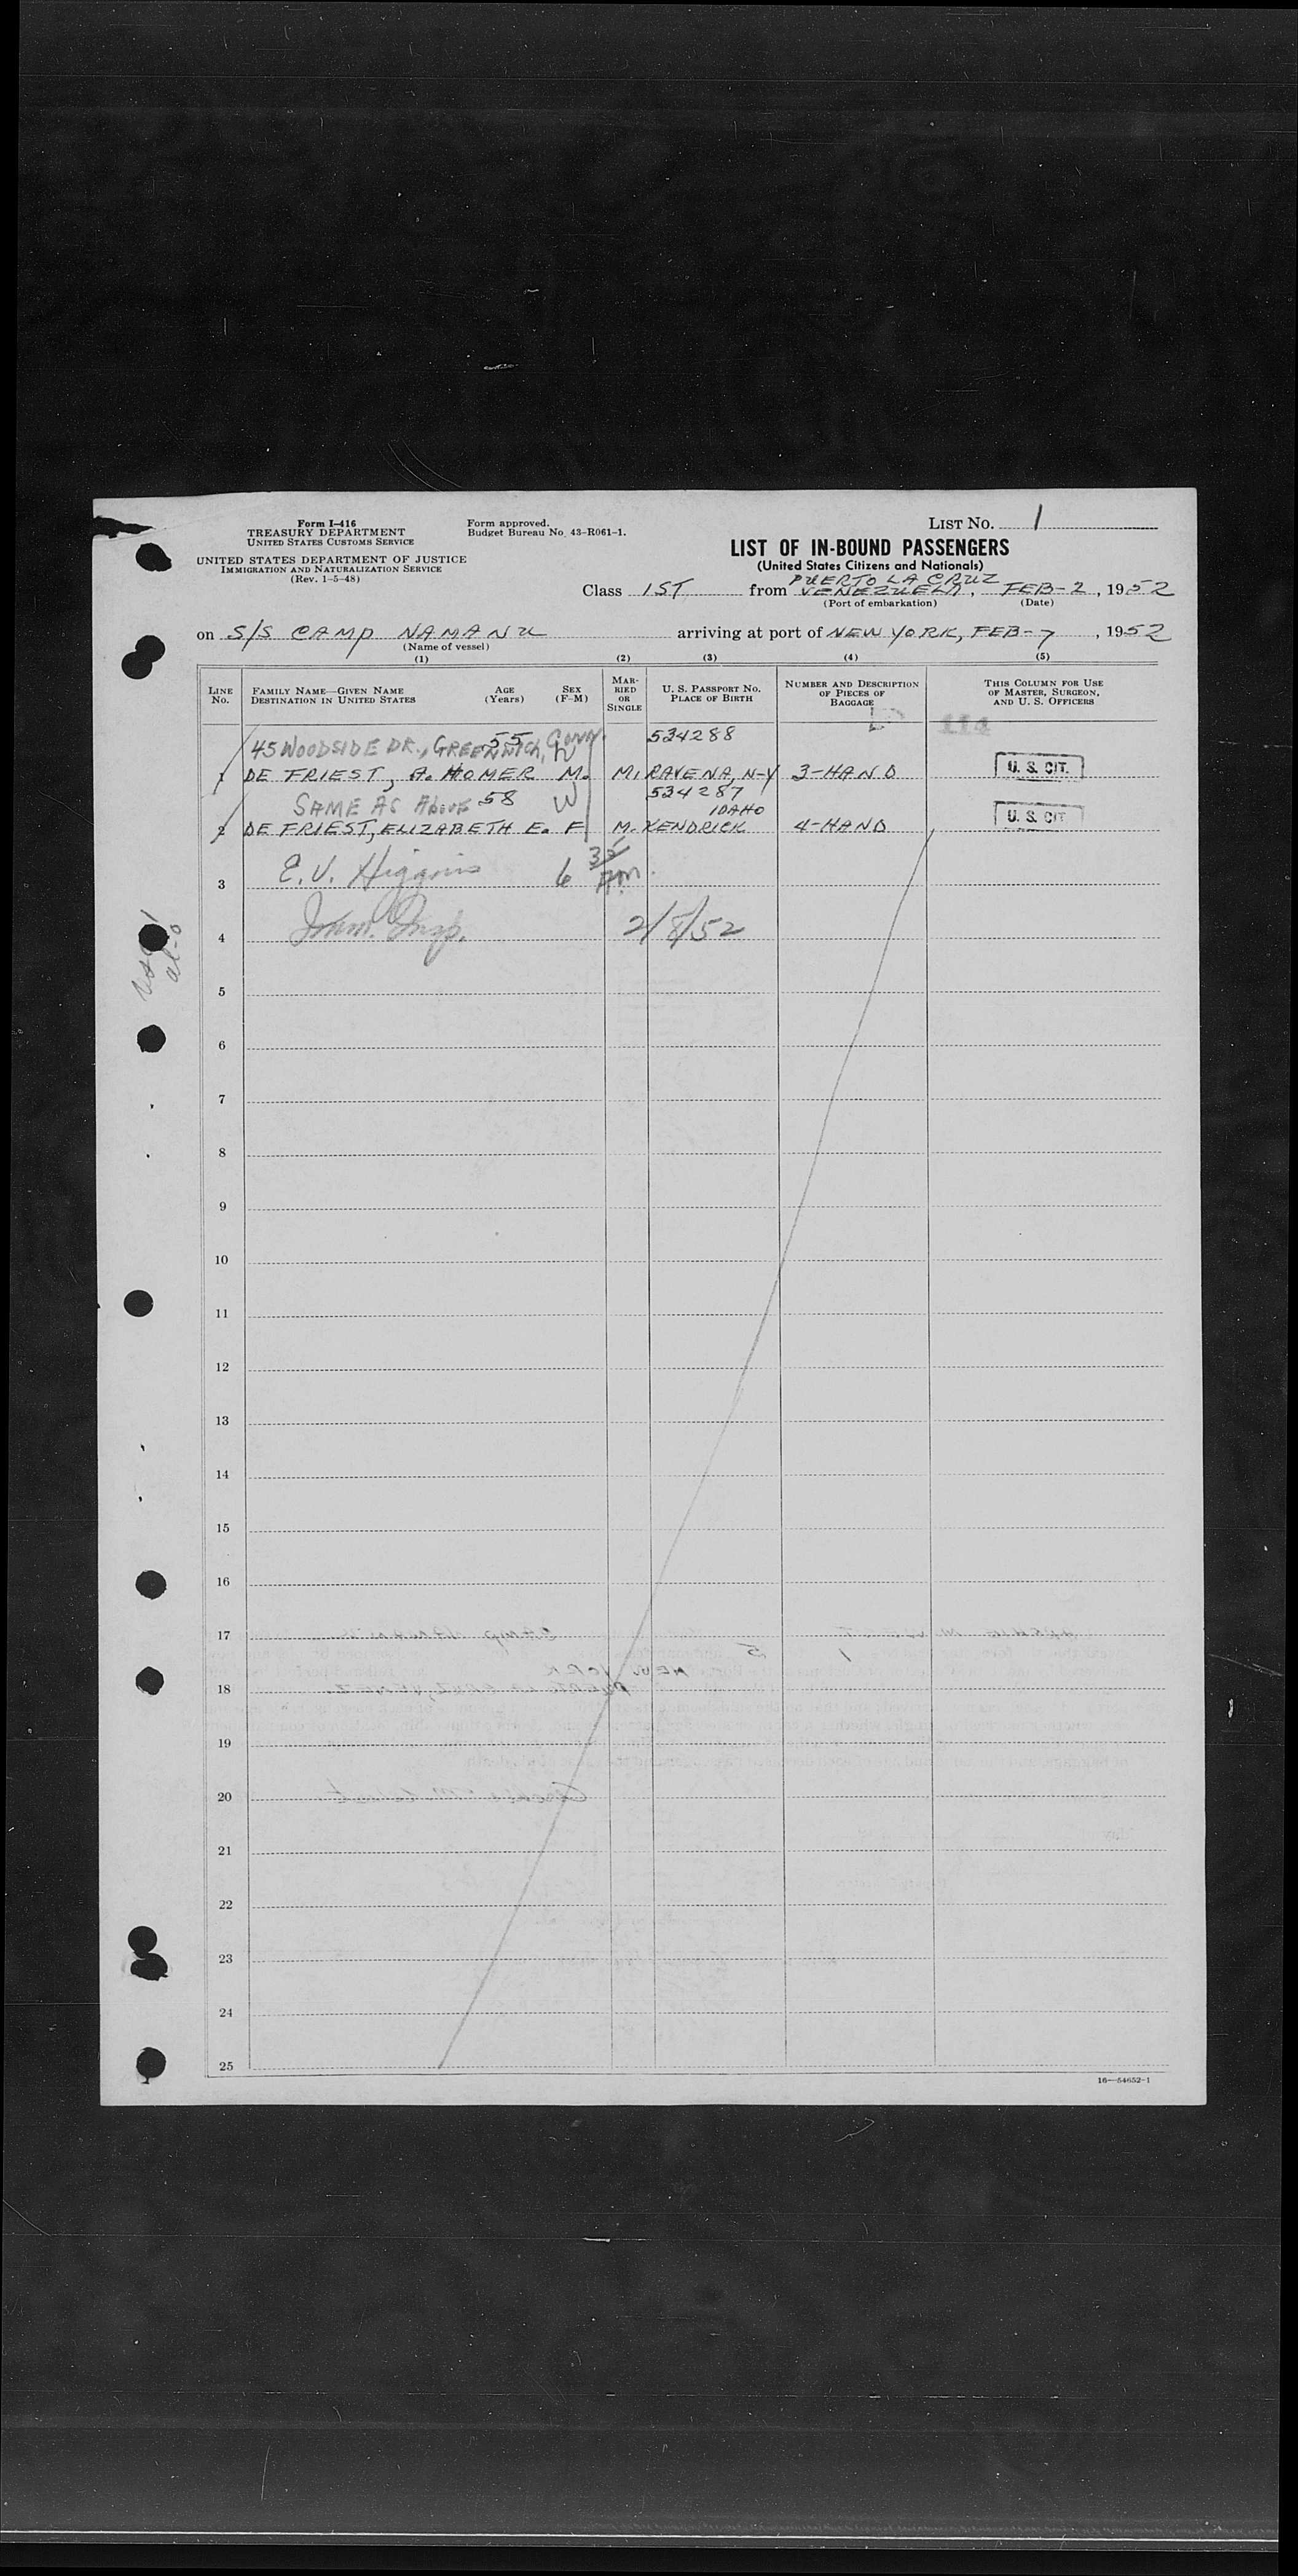 Form I-416
TREASURY DEPARTMENT
UNITED STATES CUSTOMS SERVICE
UNITED STATES DEPARTMENT OF JUSTICE
IMMIGRATION AND NATURALIZATION SERVICE
(Rev. 1-5-48)
Form approved.
Budget Bureau No. 43-R061-1.
LIST NO. 1
LIST OF IN-BOUND PASSENGERS
(United States Citizens and Nationals)
Class 1ST from PUERTO LA CRUZ VENEZUELA, FEB-2, 1952
(Port of embarkation) (Date)
on S/S CAMP NAMANU arriving at port of NEW YORK, FEB-7, 1952
(Name of vessel)
(1) (2) (3) (4) (5)
LINE NO.
FAMILY NAME—GIVEN NAME
DESTINATION IN UNITED STATES
AGE (Years)
SEX (F-M)
MARRIED OR SINGLE
U. S. PASSPORT NO.
PLACE OF BIRTH
NUMBER AND DESCRIPTION OF PIECES OF BAGGAGE
THIS COLUMN FOR USE OF MASTER, SURGEON, AND U. S. OFFICERS
45 WOODSIDE DR., GREENWICH, CONN. 55 W 534288 114
1 DE FRIEST, A. HOMER M. M. RAVENA, N-Y 3-HAND U. S. CIT.
SAME AS ABOVE 58 W 534287 IDAHO
2 DE FRIEST, ELIZABETH E. F M. KENDRICK 4-HAND U. S. CIT
3 E. V. Higgins 6 35 AM
4 Imm. Insp. 2/8/52
5
6
7
8
9
10
11
12
13
14
15
16
17
18
19
20
21
22
23
24
25
16—54652-1